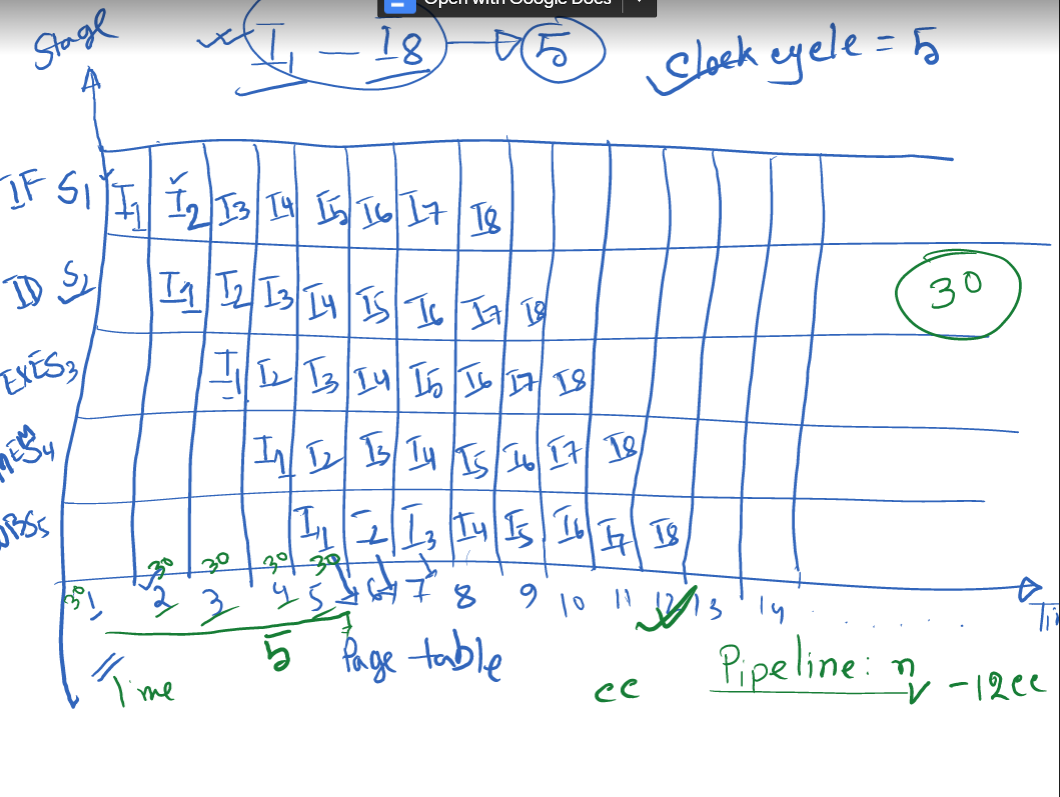 Open with Google Docs
Stage I1 — I8 → 5 clock cycle = 5
IF S1 I1 I2 I3 I4 I5 I6 I7 I8
ID S2 I1 I2 I3 I4 I5 I6 I7 I8
30
EXE S3 I1 I2 I3 I4 I5 I6 I7 I8
MEM S4 I1 I2 I3 I4 I5 I6 I7 I8
WB S5 I1 I2 I3 I4 I5 I6 I7 I8
30 30 30 30 30
1 2 3 4 5 6 7 8 9 10 11 12 13 14 .......
5 Page table
Time cc Pipeline: n - 12cc